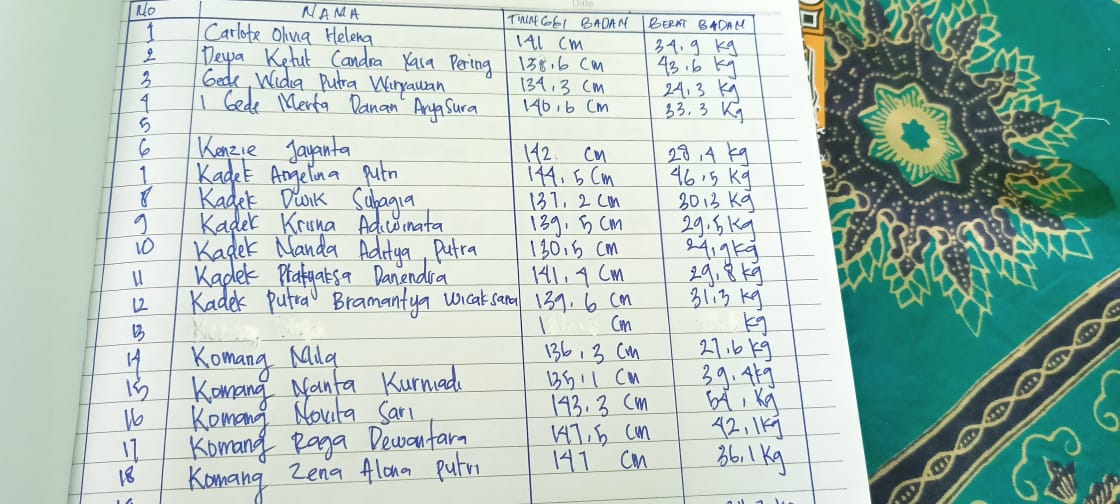 No NAMA TINGGI BADAN BERAT BADAN
1 Carlote Olivia Helena 141 cm 34.9 kg
2 Dewa Ketut Candra Yasa Pering 138.6 cm 43.6 kg
3 Gede Widia Putra Wiryawan 134,3 cm 24,3 kg
4 I Gede Merta Danan AryaSura 140,6 cm 33.3 Kg
5
6 Kenzie Jayanta 142 cm 28,4 kg
Kadek Angelina putri 144,5 cm 46,5 Kg
8 Kadek Dwik Subagia 137,2 cm 30,3 Kg
9 Kadek Krisna Adiwinata 139,5 cm 29,5 kg
10 Kadek Nanda Aditya Putra 130,5 cm 24,9 kg
11 Kadek Danendra 141,4 cm 29,8 kg
12 Kadek Putra Bramantya Wicaksana 139,6 cm 31,3 kg
13 1 cm kg
14 Komang 136,3 cm 27,6 kg
15 Komang Nanta Kurniadi 135,1 cm 39,4 kg
16 Komang Novita Sari 143,3 cm 54, Kg
17 Komang Raga Dewantara 147,5 cm 42,1 kg
18 Komang Zena Alona putri 147 cm 36,1 kg